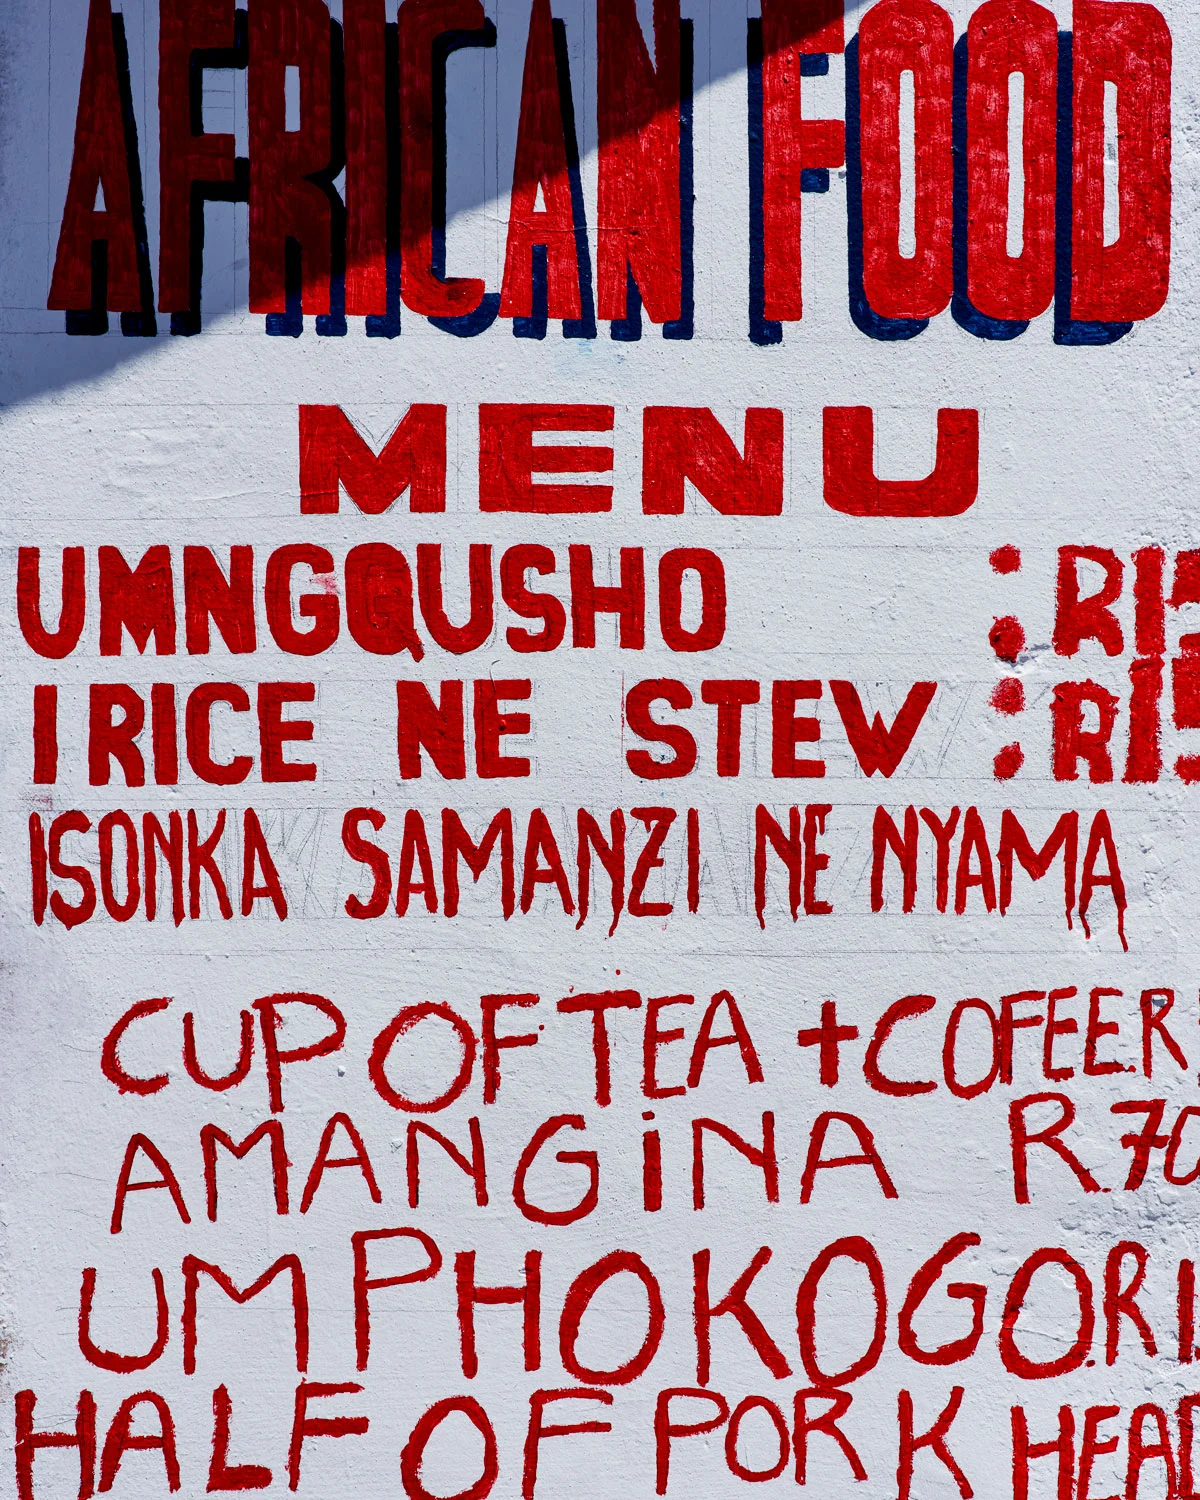 AFRICAN FOOD
MENU
UMNGQUSHO : R15
I RICE NE STEW : R15
ISONKA SAMANZI NE NYAMA
CUP OF TEA + COFEE. R
AMANGINA R70
UMPHOKOGO. R1
HALF OF PORK HEAD